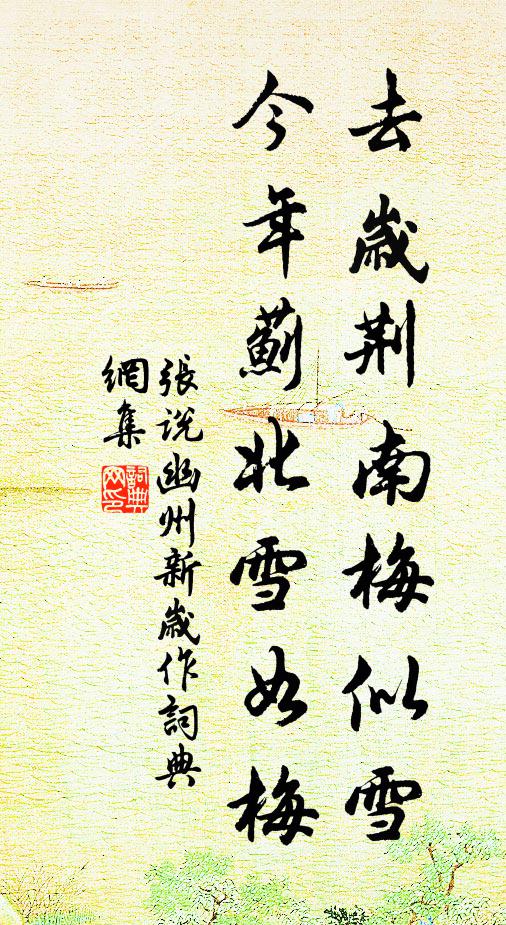 去歲荆南梅似雪
今年薊北雪如梅
張說幽州新歲作詞典
網集
詞典
网印